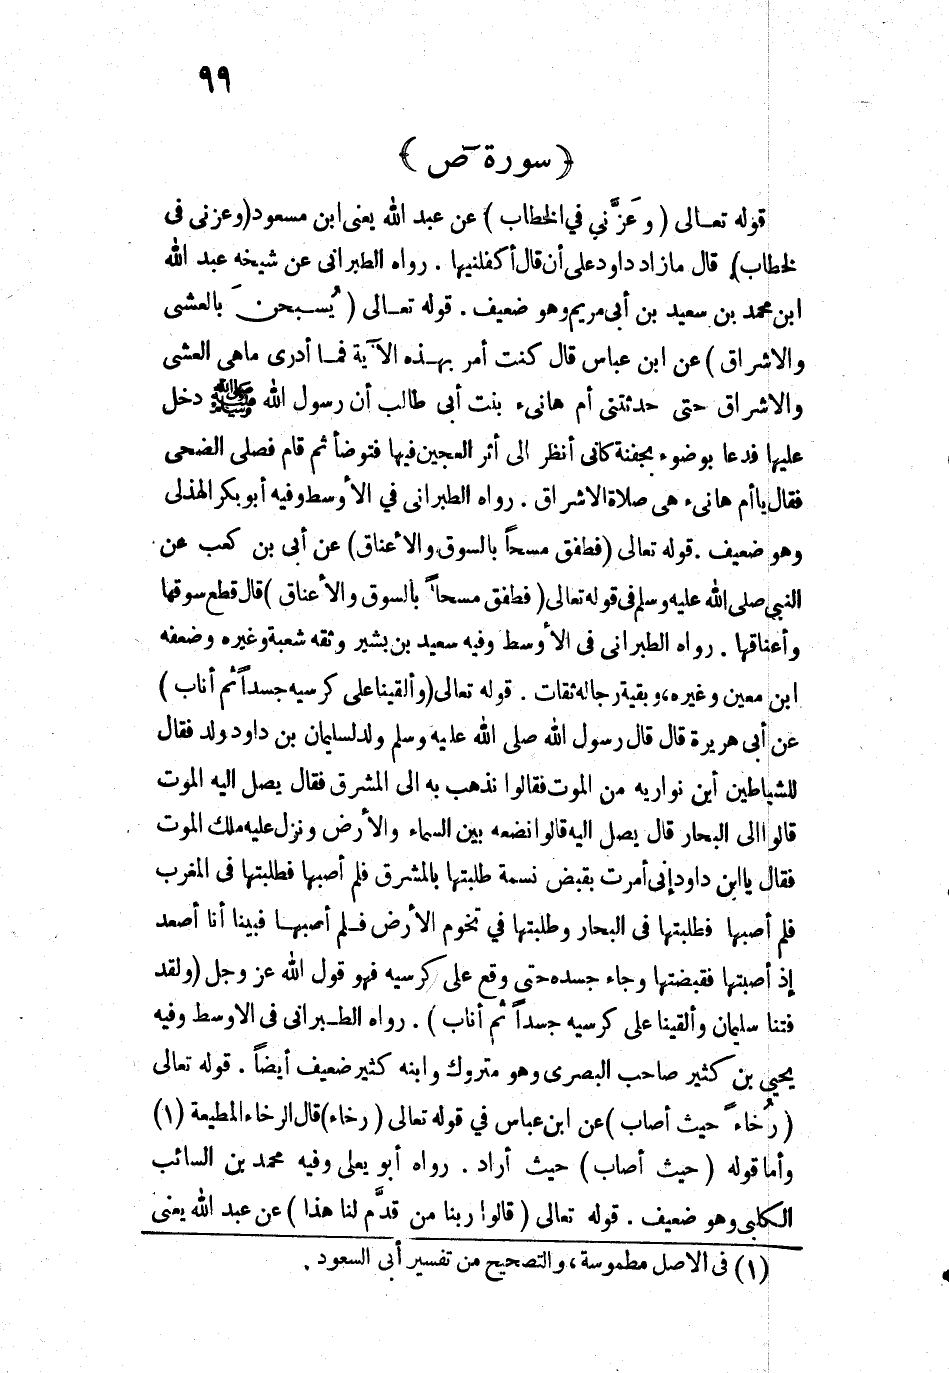 ٩٩
﴿ سورة ص ﴾
قوله تعـالى ( وعَزَّني في الخطاب ) عن عبد الله يعنى ابن مسعود (وعزنى فى
لخطاب) قال مازاد داود على أن قال أكفلنيها . رواه الطبرانى عن شيخه عبد الله
ابن محمد بن سعيد بن أبى مريم وهو ضعيف . قوله تعـالى ( يُسـبحنَ بالعشى
والاشراق ) عن ابن عباس قال كنت أمر بهـذه الآية فمـا أدرى ماهى العشى
والاشراق حتى حدثتنى أم هانىء بنت أبى طالب أن رسول الله ﷺ دخل
عليها فدعا بوضوء بجفنة كانى أنظر الى أثر العجين فيها فتوضأ ثم قام فصلى الضحى
فقال ياأم هانىء هى صلاة الاشراق . رواه الطبرانى في الأوسط وفيه أبو بكر الهذلى
وهو ضعيف . قوله تعالى (فطفق مسحاً بالسوق والأعناق) عن أبى بن كعب عن
النبي صلى الله عليه وسلم فى قوله تعالى ( فطفق مسحاً بالسوق والأعناق ) قال قطع سوقها
وأعناقها . رواه الطبرانى فى الأوسط وفيه سعيد بن بشير وثقه شعبة وغيره وضعفه
ابن معين وغيره، وبقية رجاله ثقات . قوله تعالى (وألقينا على كرسيه جسداً ثم أناب )
عن أبى هريرة قال قال رسول الله صلى الله عليه وسلم ولد لسليمان بن داود ولد فقال
للشياطين أين نواريه من الموت فقالوا نذهب به الى المشرق فقال يصل اليه الموت
قالوا الى البحار قال يصل اليه قالوا نضعه بين السماء والأرض ونزل عليه ملك الموت
فقال ياابن داود إنى أمرت بقبض نسمة طلبتها بالمشرق فلم أصبها فطلبتها فى المغرب
فلم أصبها فطلبتها فى البحار وطلبتها في تخوم الأرض فـلم أصبهـا فبينا أنا أصعد
إذ أصبتها فقبضتها وجاء جسده حتى وقع على كرسيه فهو قول الله عز وجل (ولقد
فتنا سليمان وألقينا على كرسيه جسداً ثم أناب ) . رواه الطـبرانى فى الاوسط وفيه
يحيى بن كثير صاحب البصرى وهو متروك وابنه كثير ضعيف أيضاً . قوله تعالى
( رُخاءً حيث أصاب ) عن ابن عباس في قوله تعالى ( رخاء) قال الرخاء المطيعة (١)
وأما قوله ( حيث أصاب ) حيث أراد . رواه أبو يعلى وفيه محمد بن السائب
الكلبى وهو ضعيف . قوله تعالى ( قالوا ربنا من قدَّم لنا هذا ) عن عبد الله يعنى
(١) فى الاصل مطموسة ، والتصحيح من تفسير أبى السعود .